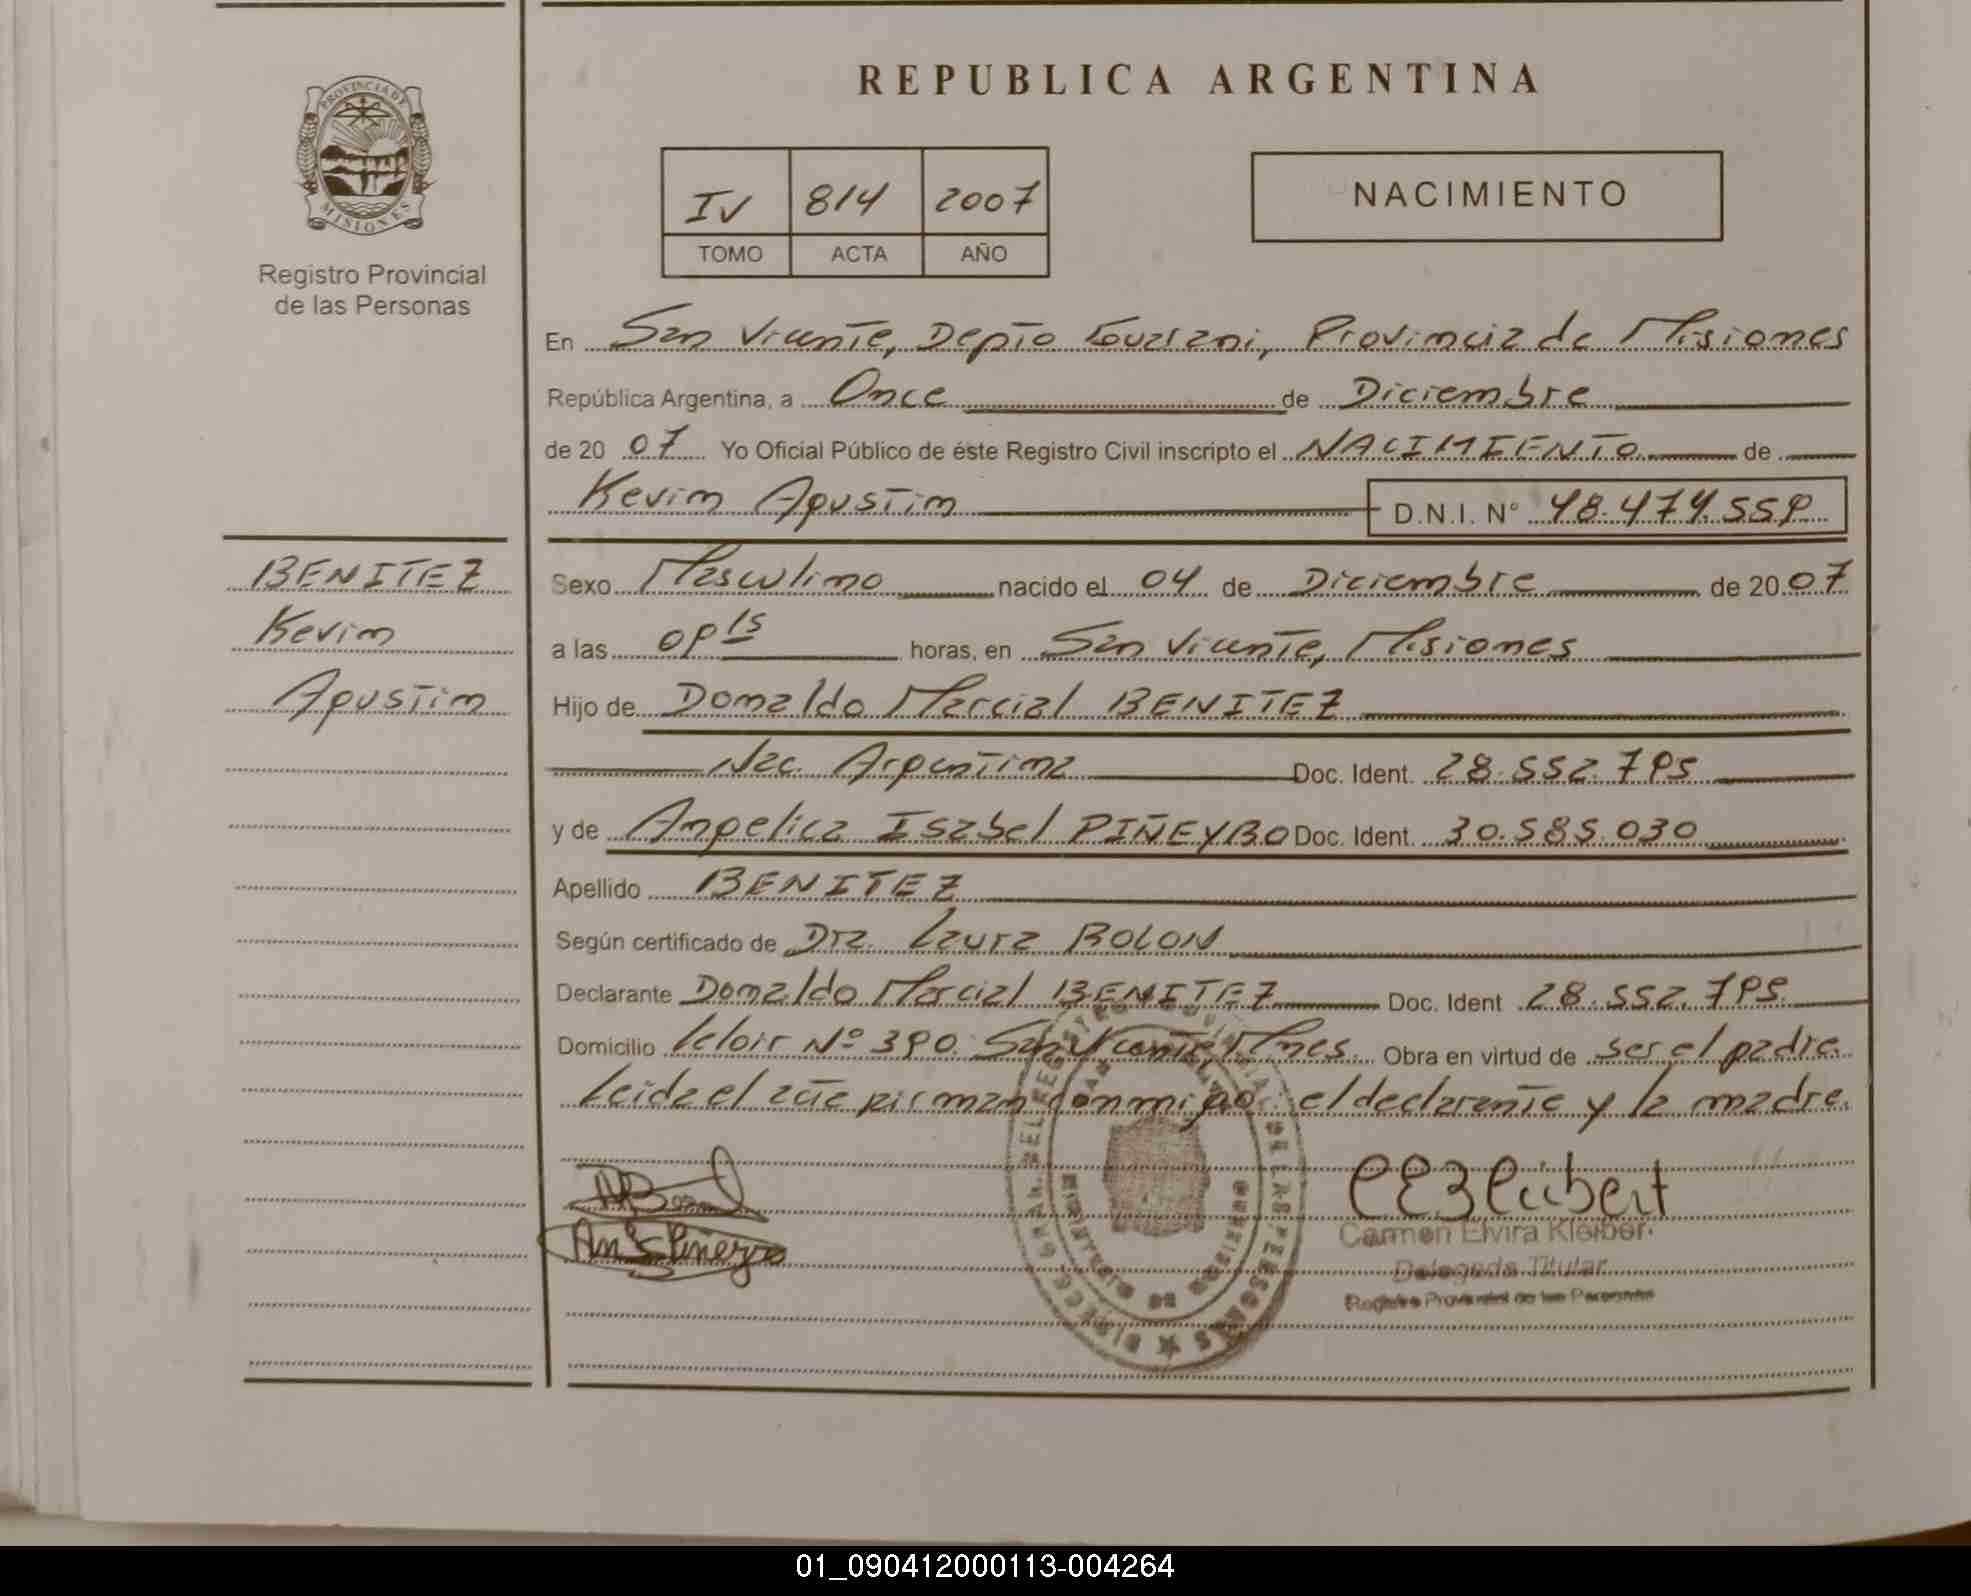 REPUBLICA ARGENTINA
PROVINCIA DE
MISIONES
Registro Provincial
de las Personas
IV 814 2007
TOMO ACTA AÑO
NACIMIENTO
En San Vicente, Depto Guarani, Provincia de Misiones
República Argentina, a Once de Diciembre
de 20 07 Yo Oficial Público de éste Registro Civil inscripto el NACIMIENTO de
Kevin Agustin D.N.I. N° 48.474.559
BENITEZ
Kevin
Agustin
Sexo Masculino nacido el 04 de Diciembre de 20 07
a las 09 15 horas, en San Vicente, Misiones
Hijo de Donaldo Marcial BENITEZ
Nac. Argentina Doc. Ident. 28.552.795
y de Angelica Isabel PIÑEYRO Doc. Ident. 30.585.030
Apellido BENITEZ
Según certificado de Dra. Laura BOLON
Declarante Donaldo Marcial BENITEZ Doc. Ident 28.552.795
Domicilio Leloir Nº 390. San Vicente, Mnes. Obra en virtud de ser el padre.
Leida el acta firman conmigo: el declarante y la madre.
Carmen Elvira Kleiber
Delegada Titular
Registro Provincial de las Personas
01_090412000113-004264